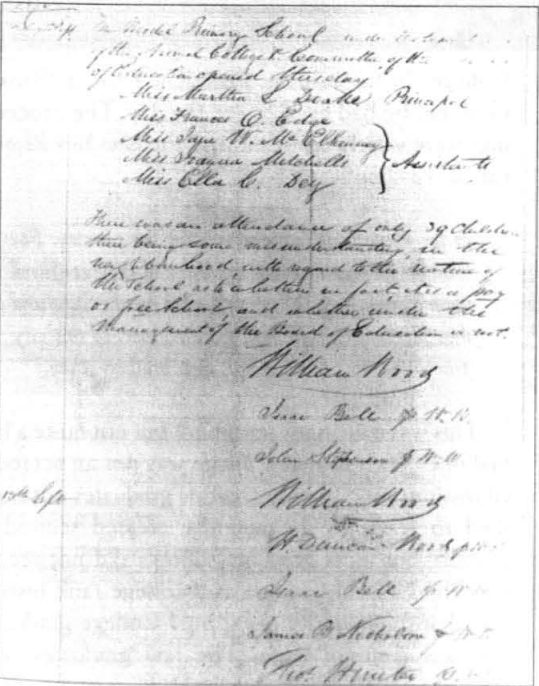 Model Primary School under
of the Normal College Committee of the
of Education opened thursday
Miss Martha S. Principal
Miss Frances O. Edge
Miss Jape W. McElhinney
Miss Mitchells Assistants
Miss Ella C. Dey
There was an attendance of only 39 Children
there being some misunderstanding in the
neighbourhood with regard to the nature of
the School as to whether in fact it is a pay
or free School and whether under the
management of the Board of Education or not.
William Wood
Isaac Bell
John Stephenson
13th Sept William Wood
W. Duncan Wood
Isaac Bell
James B Nicholson
Thos Hunter